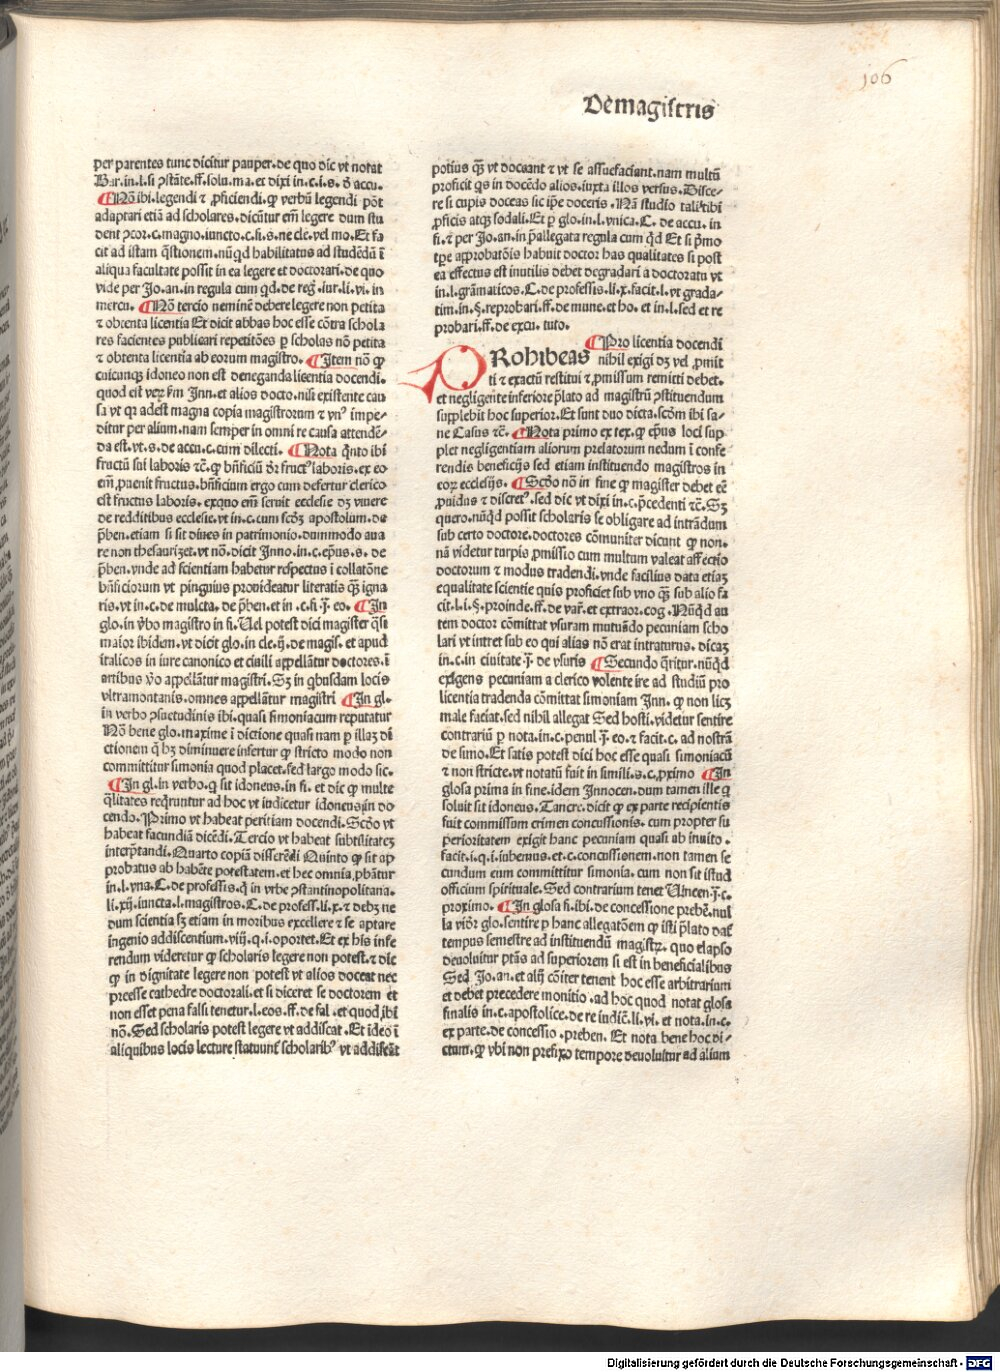 106
De magistris
per parentes tunc dicitur pauper. de quo dic vt notat
Bar. in. l. si ꝯstāte. ff. solu. ma. et dixi in. c. i. s. de accu.
¶ Nō ibi. legendi ⁊ ꝓficiendi. ꝙ verbū legendi pōt
adaptari etiā ad scholares. dicūtur em̄ legere dum stu
dent ꝓcor. c. magno. iuncto. c. fi. s. ne cle. vel mo. Et fa
cit ad istam q̄stionem. nūqd habilitatus ad studēdū ī
aliqua facultate possit in ea legere et doctorari. de quo
vide per Jo. an. in regula cum qd. de reg. iur. li. vi. in
mercu. ¶ Nō tercio neminē debere legere non petita
⁊ obtenta licentia Et dicit abbas hoc esse cōtra schola
res facientes publicari repetitōes ꝑ scholas nō petita
⁊ obtenta licentia ab eorum magistro. ¶ Item nō ꝙ
cuicunqꝫ idoneo non est deneganda licentia docendi.
quod eit verꝝ ẜm Inn. et alios docto. nisi existente cau
sa vt qꝛ adest magna copia magistrorum ⁊ vnꝰ impe-
ditur per alium. nam semper in omni re causa attendē-
da est. vt. s. de accu. c. cum dilecti. ¶ Nota qnto ibi
fructū sui laboris ⁊c̄. ꝙ bn̄ficiū dr̄ fructꝰ laboris. ex eo
em̄ ꝓuenit fructus. bn̄ficium ergo cum defertur clerico
est fructus laboris. ex quo em̄ seruit ecclesie dꝫ viuere
de redditibus ecclesie. vt in. c. cum scd̓ꝫ apostolum. de
p̄ben. etiam si sit diues in patrimonio. dummodo aua
re non thesaurizet. vt nō. dicit Inno. in. c. ep̄us. s. de
p̄ben. vnde ad scientiam habetur respectus ī collatōne
bn̄ficiorum vt pinguius prouideatur literatis q̄ꝫ igna
ris. vt in. c. de multa. de p̄ben. et in. c. fi. j̄. eo. ¶ In
glo. in v̓bo magistro in fi. Vel potest dici magister q̄si
maior ibidem. vt dicit glo. in cle. ij. de magis. et apud
italicos in iure canonico et ciuili appellātur doctores. ī
artibus v̓o appellātur magistri. Sꝫ in qbusdam locis
vltramontanis. omnes appellātur magistri ¶ In gl.
in verbo ꝯsuetudinis ibi. quasi simoniacum reputatur
Nō bene glo. maxime ī dictione quasi nam ꝑ illaꝫ di
ctionem q̄ hꝫ diminuere infertur ꝙ stricto modo non
committitur simonia quod placet. sed largo modo sic.
¶ In gl. in verbo. ꝙ sit idoneus. in fi. et dic ꝙ multe
q̄litates reqruntur ad hoc vt iudicetur idoneus in do
cendo. Primo vt habeat peritiam docendi. Scd̓o vt
habeat facundiā dicēdi. Tercio vt habeat subtilitateꝫ
interp̄tandi. Quarto copiā disserēdi Quinto ꝙ sit ap
probatus ab habēte potestatem. et hec omnia ꝓbātur
in. l. vna. C. de professis. q̄ in vrbe ꝯstantinopolitana.
li. xij. iuncta. l. magistros. C. de profess. li. x. ⁊ debꝫ ne
dum scientia sꝫ etiam in moribus excellere ⁊ se aptare
ingenio addiscentium. viij. q. i. oportet. Et ex his infe
rendum videretur ꝙ scholaris legere non potest. ⁊ dic
ꝙ in dignitate legere non potest vt alios doceat nec
preesse cathedre doctorali. et si diceret se doctorem et
non esset pena falsi tenetur. l. eos. ff. de fal. et quod ibi
nō. Sed scholaris potest legere vt addiscat. Et ideo ī
aliquibus locis lecture statuunt̄ scholaribꝰ vt addiscāt
potius q̄ꝫ vt doceant ⁊ vt se assuefaciant. nam multū
proficit qs in docēdo alios. iuxta illos versus. Disce-
re si cupis doceas sic ip̄e doceris. Nā studio tali tibi
ꝓficis atqꝫ sodali. Et ꝑ glo. in. l. vnica. C. de accu. in
fi. ⁊ per Jo. an. in p̄allegata regula cum qd Et si pmo
tꝑe approbatōis habuit doctor has qualitates si post
ea effectus est inutilis debet degradari a doctoratu vt
in. l. grāmaticos. C. de professis. li. x. facit. l. vt grada-
tim. in. §. reprobari. ff. de mune. et ho. et in. l. sed et re
probari. ff. de excu. tuto.
¶ Pro licentia docendi
PRohibeas nihil exigi dꝫ vel ꝓmit
ti ⁊ exactū restitui ⁊ ꝓmissum remitti debet.
et negligente inferiore p̄lato ad magistrū ꝯstituendum
supplebit hoc superior. Et sunt duo dicta. scd̓m ibi sa-
ne Casus ⁊c̄. ¶ Nota primo ex tex. ꝙ ep̄us loci sup
plet negligentiam aliorum prelatorum nedum ī confe
rendis beneficijs sed etiam instituendo magistros in
eoꝝ ecclesijs. ¶ Scd̓o nō in fine ꝙ magister debet eē
ꝓuidus ⁊ discretꝰ. sed dic vt dixi in. c. p̄cedenti ⁊c̄. Sꝫ
quero. nūqd possit scholaris se obligare ad intrādum
sub certo doctore. doctores cōmuniter dicunt ꝙ non.
nā videtur turpis ꝓmissio cum multum valeat affectio
doctorum ⁊ modus tradendi. vnde facilius data etiaꝫ
equalitate scientie quis proficiet sub vno q̄ꝫ sub alio fa
cit. l. i. §. proinde. ff. de var̄. et extraor. cog. Nūqd au
tem doctor cōmittat vsuram mutuādo pecuniam scho
lari vt intret sub eo qui alias nō erat intraturus. dicaꝫ
in. c. in ciuitate j̄. de vsuris ¶ Secundo q̄ritur. nūqd
exigens pecuniam a clerico volente ire ad studiū pro
licentia tradenda cōmittat simoniam Inn. ꝙ non licꝫ
male faciat. sed nihil allegat Sed hosti. videtur sentire
contrariū ꝑ nota. in. c. penul j̄. eo. ⁊ facit. c. ad nostrā
de simo. Et satis potest dici hoc esse quasi simoniacū
⁊ non stricte. vt notatū fuit in simili. s. c. ꝓximo ¶ In
glosa prima in fine. idem Innocen. dum tamen ille q̄
soluit sit idoneus. Tancre. dicit ꝙ ex parte recipientis
fuit commissum crimen concussionis. cum propter su
perioritatem exigit hanc pecuniam quasi ab inuito.
facit. i. q. i. iubemus. et. c. concussionem. non tamen se
cundum eum committitur simonia. cum non sit istud
officium spirituale. Sed contrarium tenet Vincen. j̄. c.
proximo. ¶ In glosa fi. ibi. de concessione prebē. nul
la vid̓r glo. sentire ꝑ hanc allegatōem ꝙ isti p̄lato daꝉ
tempus semestre ad instituendū magistꝝ. quo elapso
deuoluitur ptās ad superiorem si est in beneficialibus
Sed Jo. an. et alij cōiter tenent hoc esse arbitrarium
et debet precedere monitio. ad hoc quod notat glosa
finalis in. c. apostolice. de re iudic̄. li. vi. et nota. in. c.
ex parte. de concessio. preben. Et nota bene hoc di-
ctum. ꝙ vbi non prefixo tempore deuoluitur ad alium
Digitalisierung gefördert durch die Deutsche Forschungsgemeinschaft - DFG